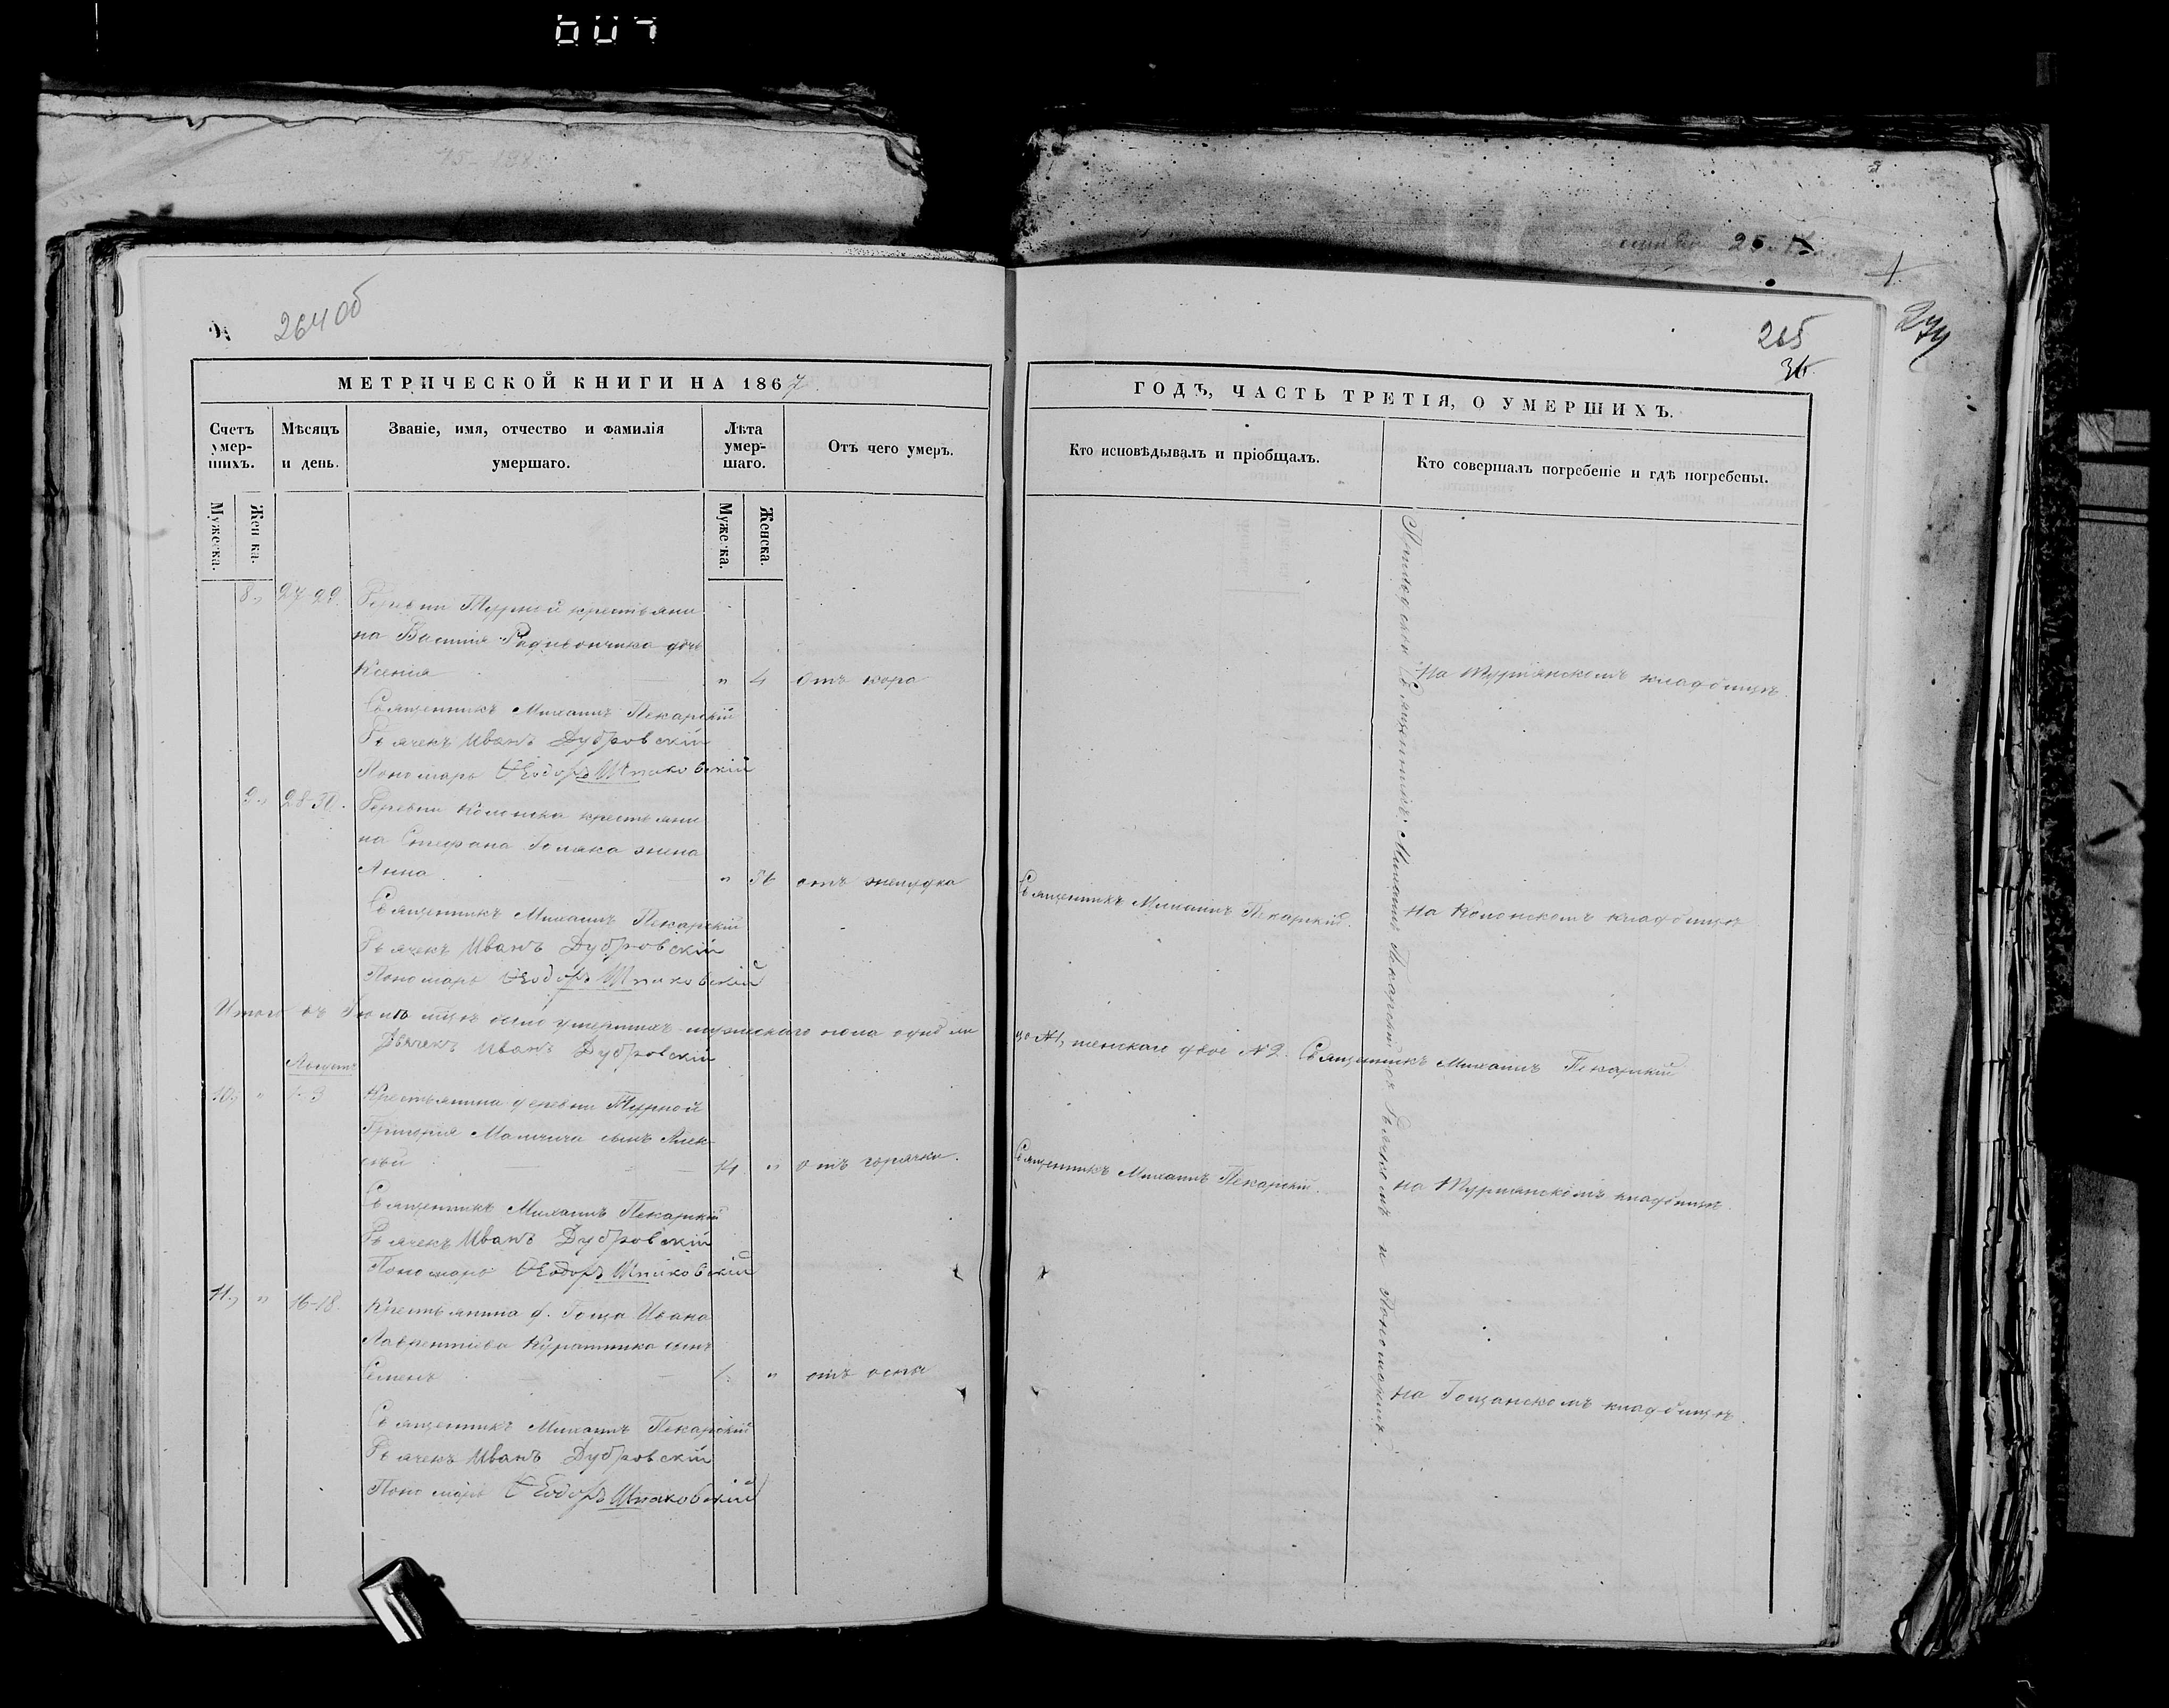 264 об
МЕТРИЧЕСКОЙ КНИГИ НА 1867
Счетъ умер-шихъ.
Мѣсяцъ и день.
Званіе, имя, отчество и фамилія умершаго.
Лѣта умер-шаго.
Отъ чего умеръ.
Мужеска.
Женска.
Мужеска.
Женска.
8 „ 27-29. Деревни Турной крестьяни
на Василія Радивончика дочь
Ксенія „ 4 отъ кора
Священникъ Михаилъ Пекарскій
Дьячекъ Иванъ Дубровскій
Пономарь Ѳеодоръ Шпаковскій
9 „ 28-30. Деревни Колонска крестьяни
на Стефана Голяка жена
Анна „ 56 отъ желудка
Священникъ Михаилъ Пекарскій
Дьячекъ Иванъ Дубровскій
Пономарь Ѳеодоръ Шпаковскій
Итого въ Іюлѣ м-цѣ было умершихъ мужескаго пола
Дьячекъ Иванъ Дубровскій
Августъ
10 „ 1-3 Крестьянина деревни Турной
Григорія Малича сынъ Алек-
сѣй 14 „ отъ горячки.
Священникъ Михаилъ Пекарскій
Дьячекъ Иванъ Дубровскій
Пономарь Ѳеодоръ Шпаковскій
11 „ 16-18. Крестьянина д. Гоща Ивана
Лаврентіева сынъ
Семенъ 1 „ отъ оспы
Священникъ Михаилъ Пекарскій
Дьячекъ Иванъ Дубровскій
Пономарь Ѳеодоръ Шпаковскій
265
36.
274
ГОДЪ, ЧАСТЬ ТРЕТІЯ, О УМЕРШИХЪ.
Кто исповѣдывалъ и пріобщалъ.
Кто совершалъ погребеніе и гдѣ погребены.
Приходскій Священникъ Михаилъ Пекарскій съ Дьячкомъ и Пономаремъ.
на Турнянскомъ кладбищѣ.
Священникъ Михаилъ Пекарскій.
на Колонскомъ кладбищѣ
№ 1, женскаго двое № 2. Священникъ Михаилъ Пекарскій
Священникъ Михаилъ Пекарскій.
на Турнянскомъ кладбищѣ.
на Гощанскомъ кладбищѣ.